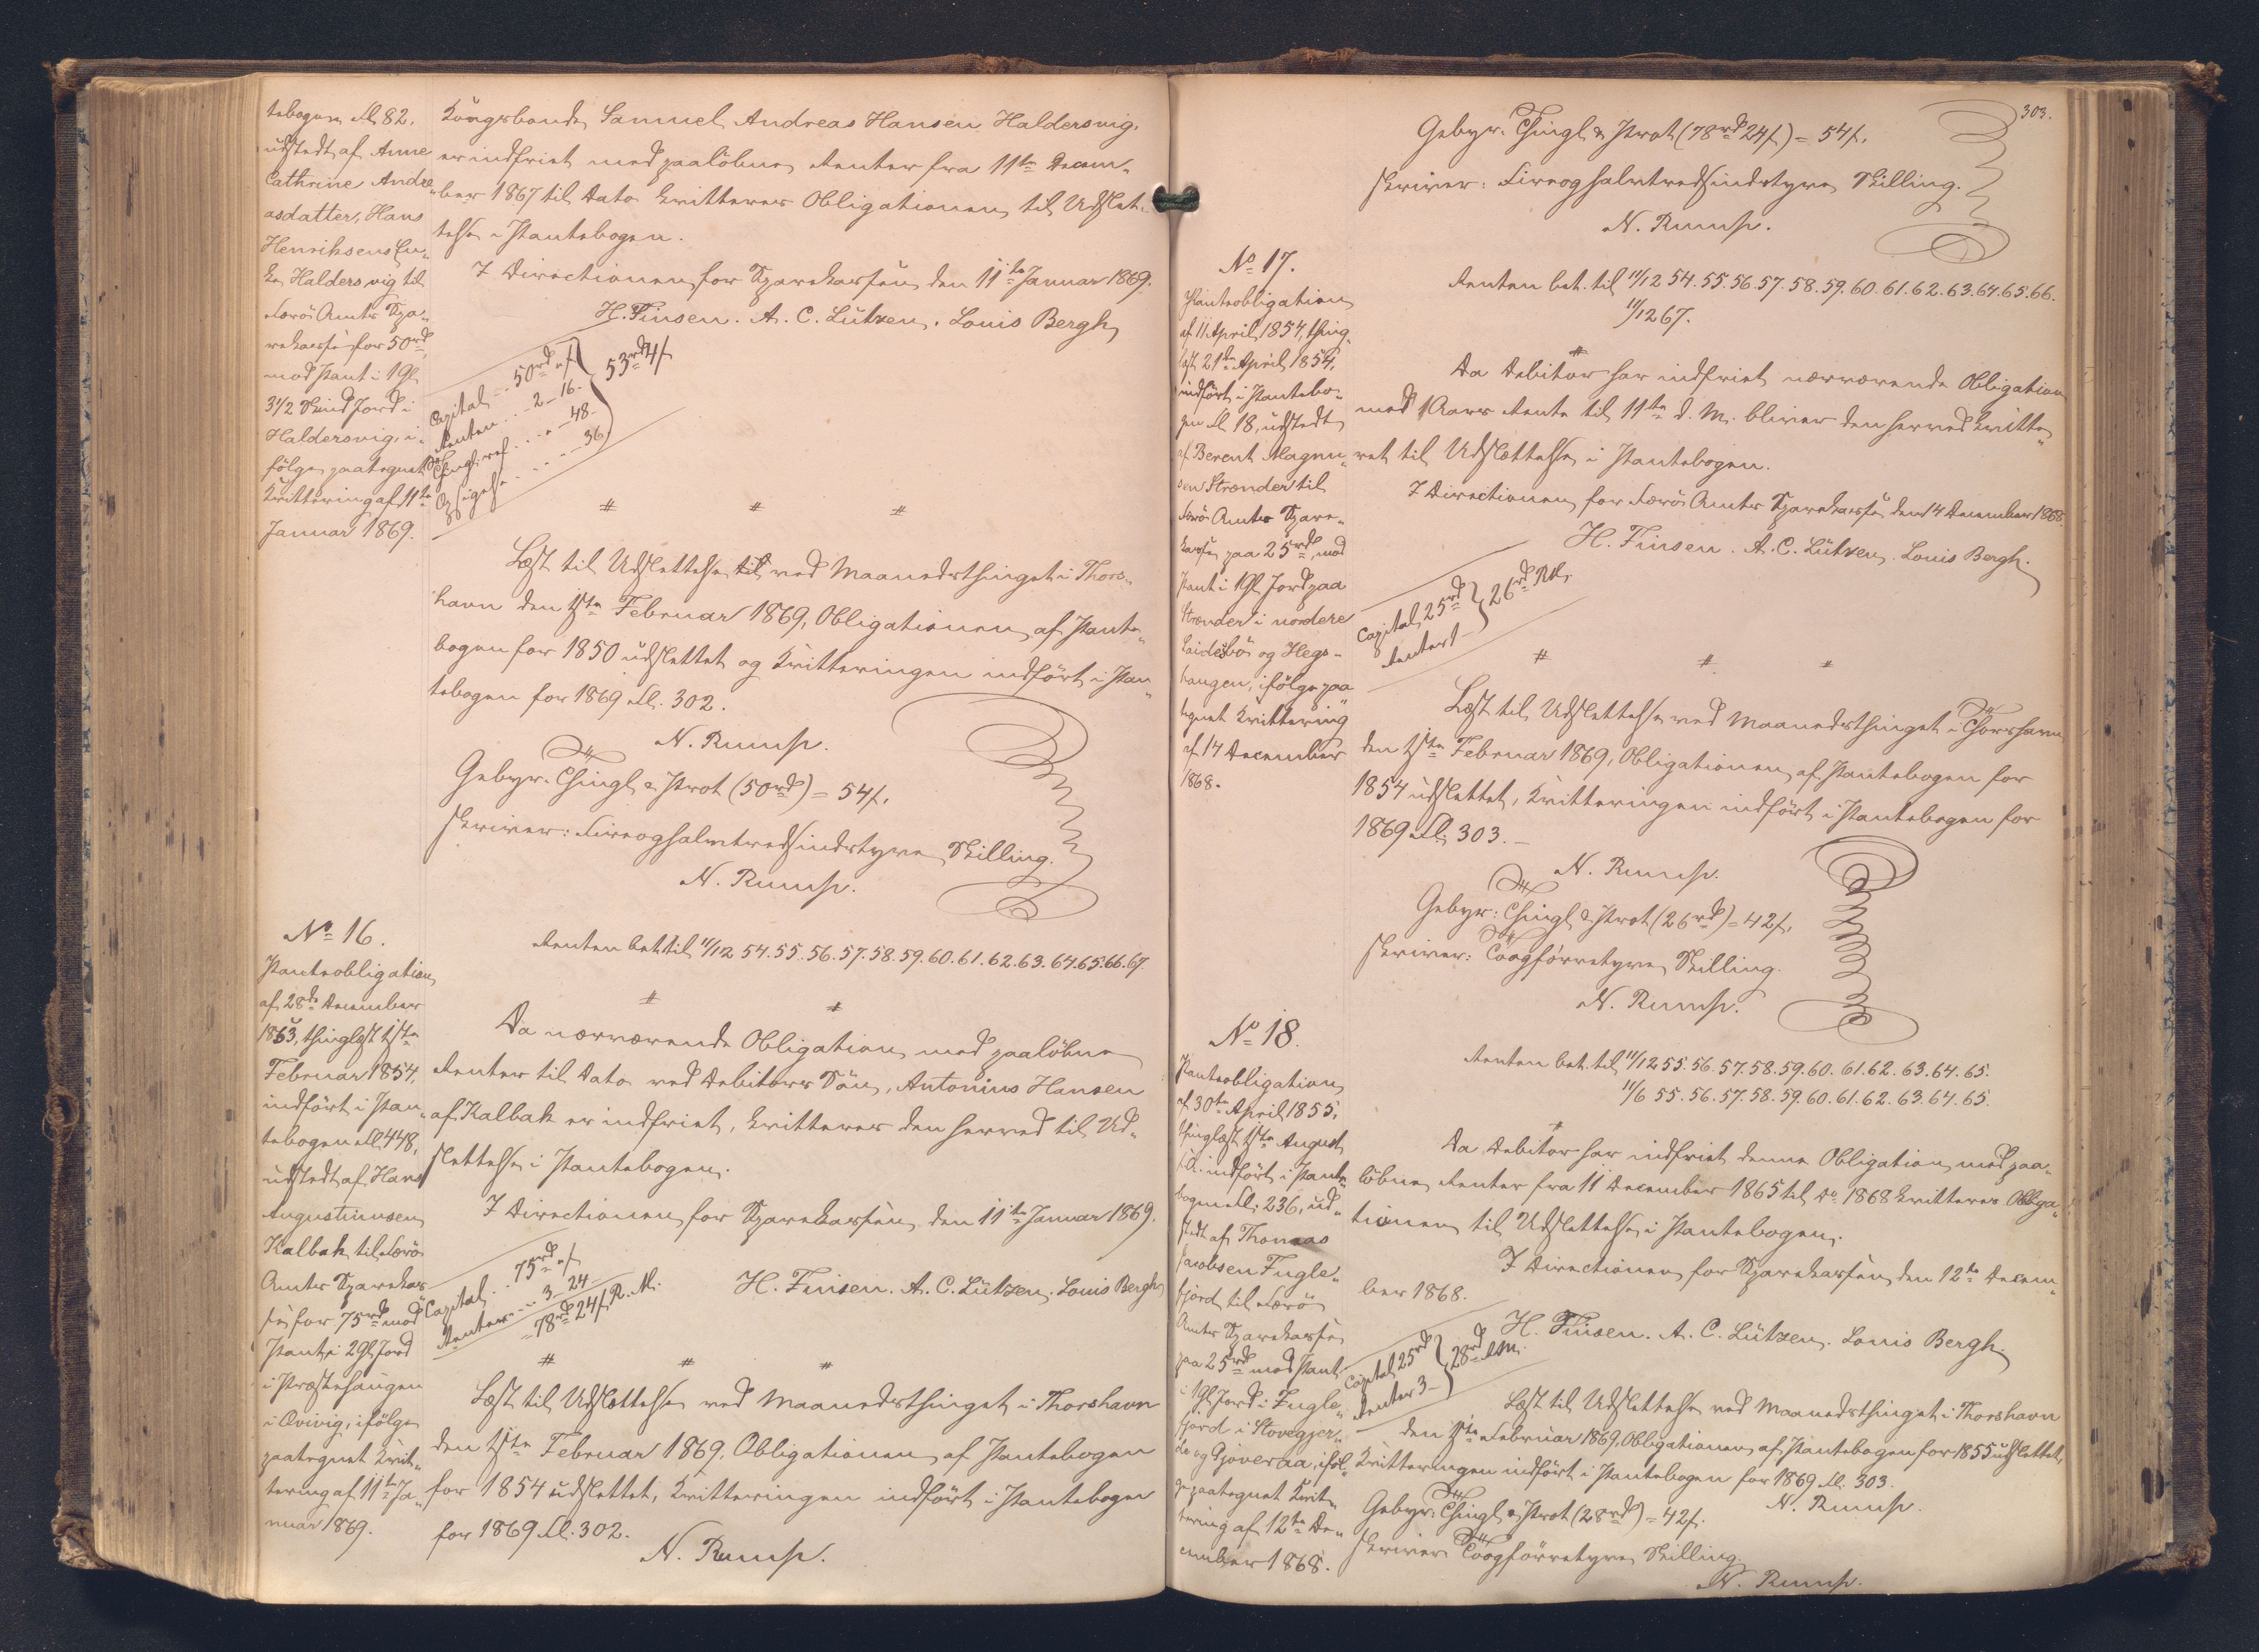 tebogen Fl 82.
udstedt af Anne
Cathrine Andre„
asdatter, Hans
Henriksens En„
ke Haldersvig til
Færö Amts Spa„
rekasse for 50rd
mod Pant i 1 Gl
3 1/2 Skind Jord i
Haldersvig, i„
følge paategnet
Kvittering af 11te
Januar 1869.
Kongsbonde Samuel Andreas Hansen Haldersvig,
er indfriet med paalöbne Renter fra 11te Decem„
ber 1867 til Dato kvitteres Obligationen til Udslet„
telse i Pantebogen.
I Directionen for Sparekassen den 11te Januar 1869.
H. Finsen. A. C. Lützen. Louis Bergh
Capital . . 50rd „ ſ } 53rd 4ſ
Renten . . . 2 - 16 -
Thinglæsn. . . . „ - 48 -
Opsigelse . . . . - 36
# # #
Læst til Udslettelse til ved Maanedsthinget i Thors„
havn den 1ste Februar 1869, Obligationen af Pante„
bogen for 1850 udslettet og Kvitteringen indført i Pan„
tebogen for 1869 Fl. 302.
N. Rump.
Gebyr. Thingl & Prot (50rd) = 54ſ.
skriver: Fireoghalvtredsindstyve Skilling.
N. Rump.
No 16.
Panteobligation
af 28de December
1853, thinglæst 1ste
Februar 1854,
indført i Pan„
tebogen Fl 448,
udstedt af Hans
Augustinusen
Kalbak til Færö
Amts Sparekas„
se for 75rd mod
Pant i 2 Gl Jord
i Præstehaugen
i Qvivig, ifölge
paategnet Kvit„
tering af 11te Ja„
nuar 1869.
Renten bet. til 11/12 54. 55. 56. 57. 58. 59. 60. 61. 62. 63. 64. 65. 66. 67.
# #
Da nærværende Obligation med paalöbne
Renter til Dato ved Debitors Sön, Antonius Hansen
af Kalbak er indfriet, kvitteres den herved til Ud„
slettelse i Pantebogen.
I Directionen for Sparekassen den 11te Januar 1869.
H. Finsen. A. C. Lützen. Louis Bergh
Capital . . 75rd „ ſ
Renter . . . 3 - 24 -
= 78rd 24ſ R. M.
# # #
Læst til Udslettelse ved Maanedsthinget i Thorshavn
den 1ste Februar 1869, Obligationen af Pantebogen
for 1854 udslettet, Kvitteringen indført i Pantebogen
for 1869 Fl. 302.
N. Rump.
303.
Gebyr. Thingl & Prot (78rd 24ſ) = 54ſ.
skriver: Fireoghalvtredsindstyve Skilling.
N. Rump.
No 17.
Panteobligation
af 11 April 1854, thing„
læst 21de April 1854,
indført i Pantebo„
gen Fl 18, udstedt
af Berent Magnu„
sen Strænder til
Færö Amts Spare„
kasse paa 25rd mod
Pant i 1 Gl Jord paa
Strænder i nordere
og Hegs„
haugen, ifölge paa„
tegnet Kvittering
af 14 December
1868.
Renten bet. til 11/12 54. 55. 56. 57. 58. 59. 60. 61. 62. 63. 64. 65. 66.
11/12 67.
#
Da Debitor har indfriet nærværende Obligation
med 1 Aars Rente til 11te d. M. bliver den herved kvitte„
ret til Udslettelse i Pantebogen.
I Directionen for Færö Amts Sparekasse den 14 December 1868.
H. Finsen. A. C. Lützen. Louis Bergh.
Capital 25rd } 26rd RM.
Renter 1 -
# # #
Læst til Udslettelse ved Maanedsthinget i Thorshavn
den 1ste Februar 1869, Obligationen af Pantebogen for
1854 udslettet, Kvitteringen indført i Pantebogen for
1869 Fl. 303. -
N. Rump.
Gebyr: Thingl & Prot (26rd) = 42ſ.
skriver: Toogförretyve Skilling.
N. Rump.
No 18.
Panteobligation
af 30te April 1855,
thinglæst 1ste August
s. A. indført i Pante„
bogen Fl. 236, ud„
stedt af Thomas
Jacobsen Fugle„
fjord til Færö
Amts Sparekasse
paa 25rd mod Pant
i 1 Gl Jord i Fugle„
fjord i Stovegjer„
de og Gjoveraa, iföl„
ge paategnet Kvit„
tering af 12te De„
cember 1868.
Renten bet. til 11/12 55. 56. 57. 58. 59. 60. 61. 62. 63. 64. 65.
11/6 55. 56. 57. 58. 59. 60. 61. 62. 63. 64. 65.
#
Da Debitor har indfriet denne Obligation med paa„
löbne Renter fra 11 December 1865 til Do 1868 kvitteres Obliga„
tionen til Udslettelse i Pantebogen.
I Directionen for Sparekassen den 12te Decem„
ber 1868.
H. Finsen. A. C. Lützen. Louis Bergh.
Capital 25rd } 28rd RM.
Renter 3 -
Læst til Udslettelse ved Maanedsthinget i Thorshavn
den 1ste Februar 1869, Obligationen af Pantebogen for 1855 udslettet,
Kvitteringen indført i Pantebogen for 1869 Fl. 303.
N. Rump.
Gebyr. Thingl & Prot (28rd) = 42ſ.
skriver Toogförretyve Skilling.
N. Rump.